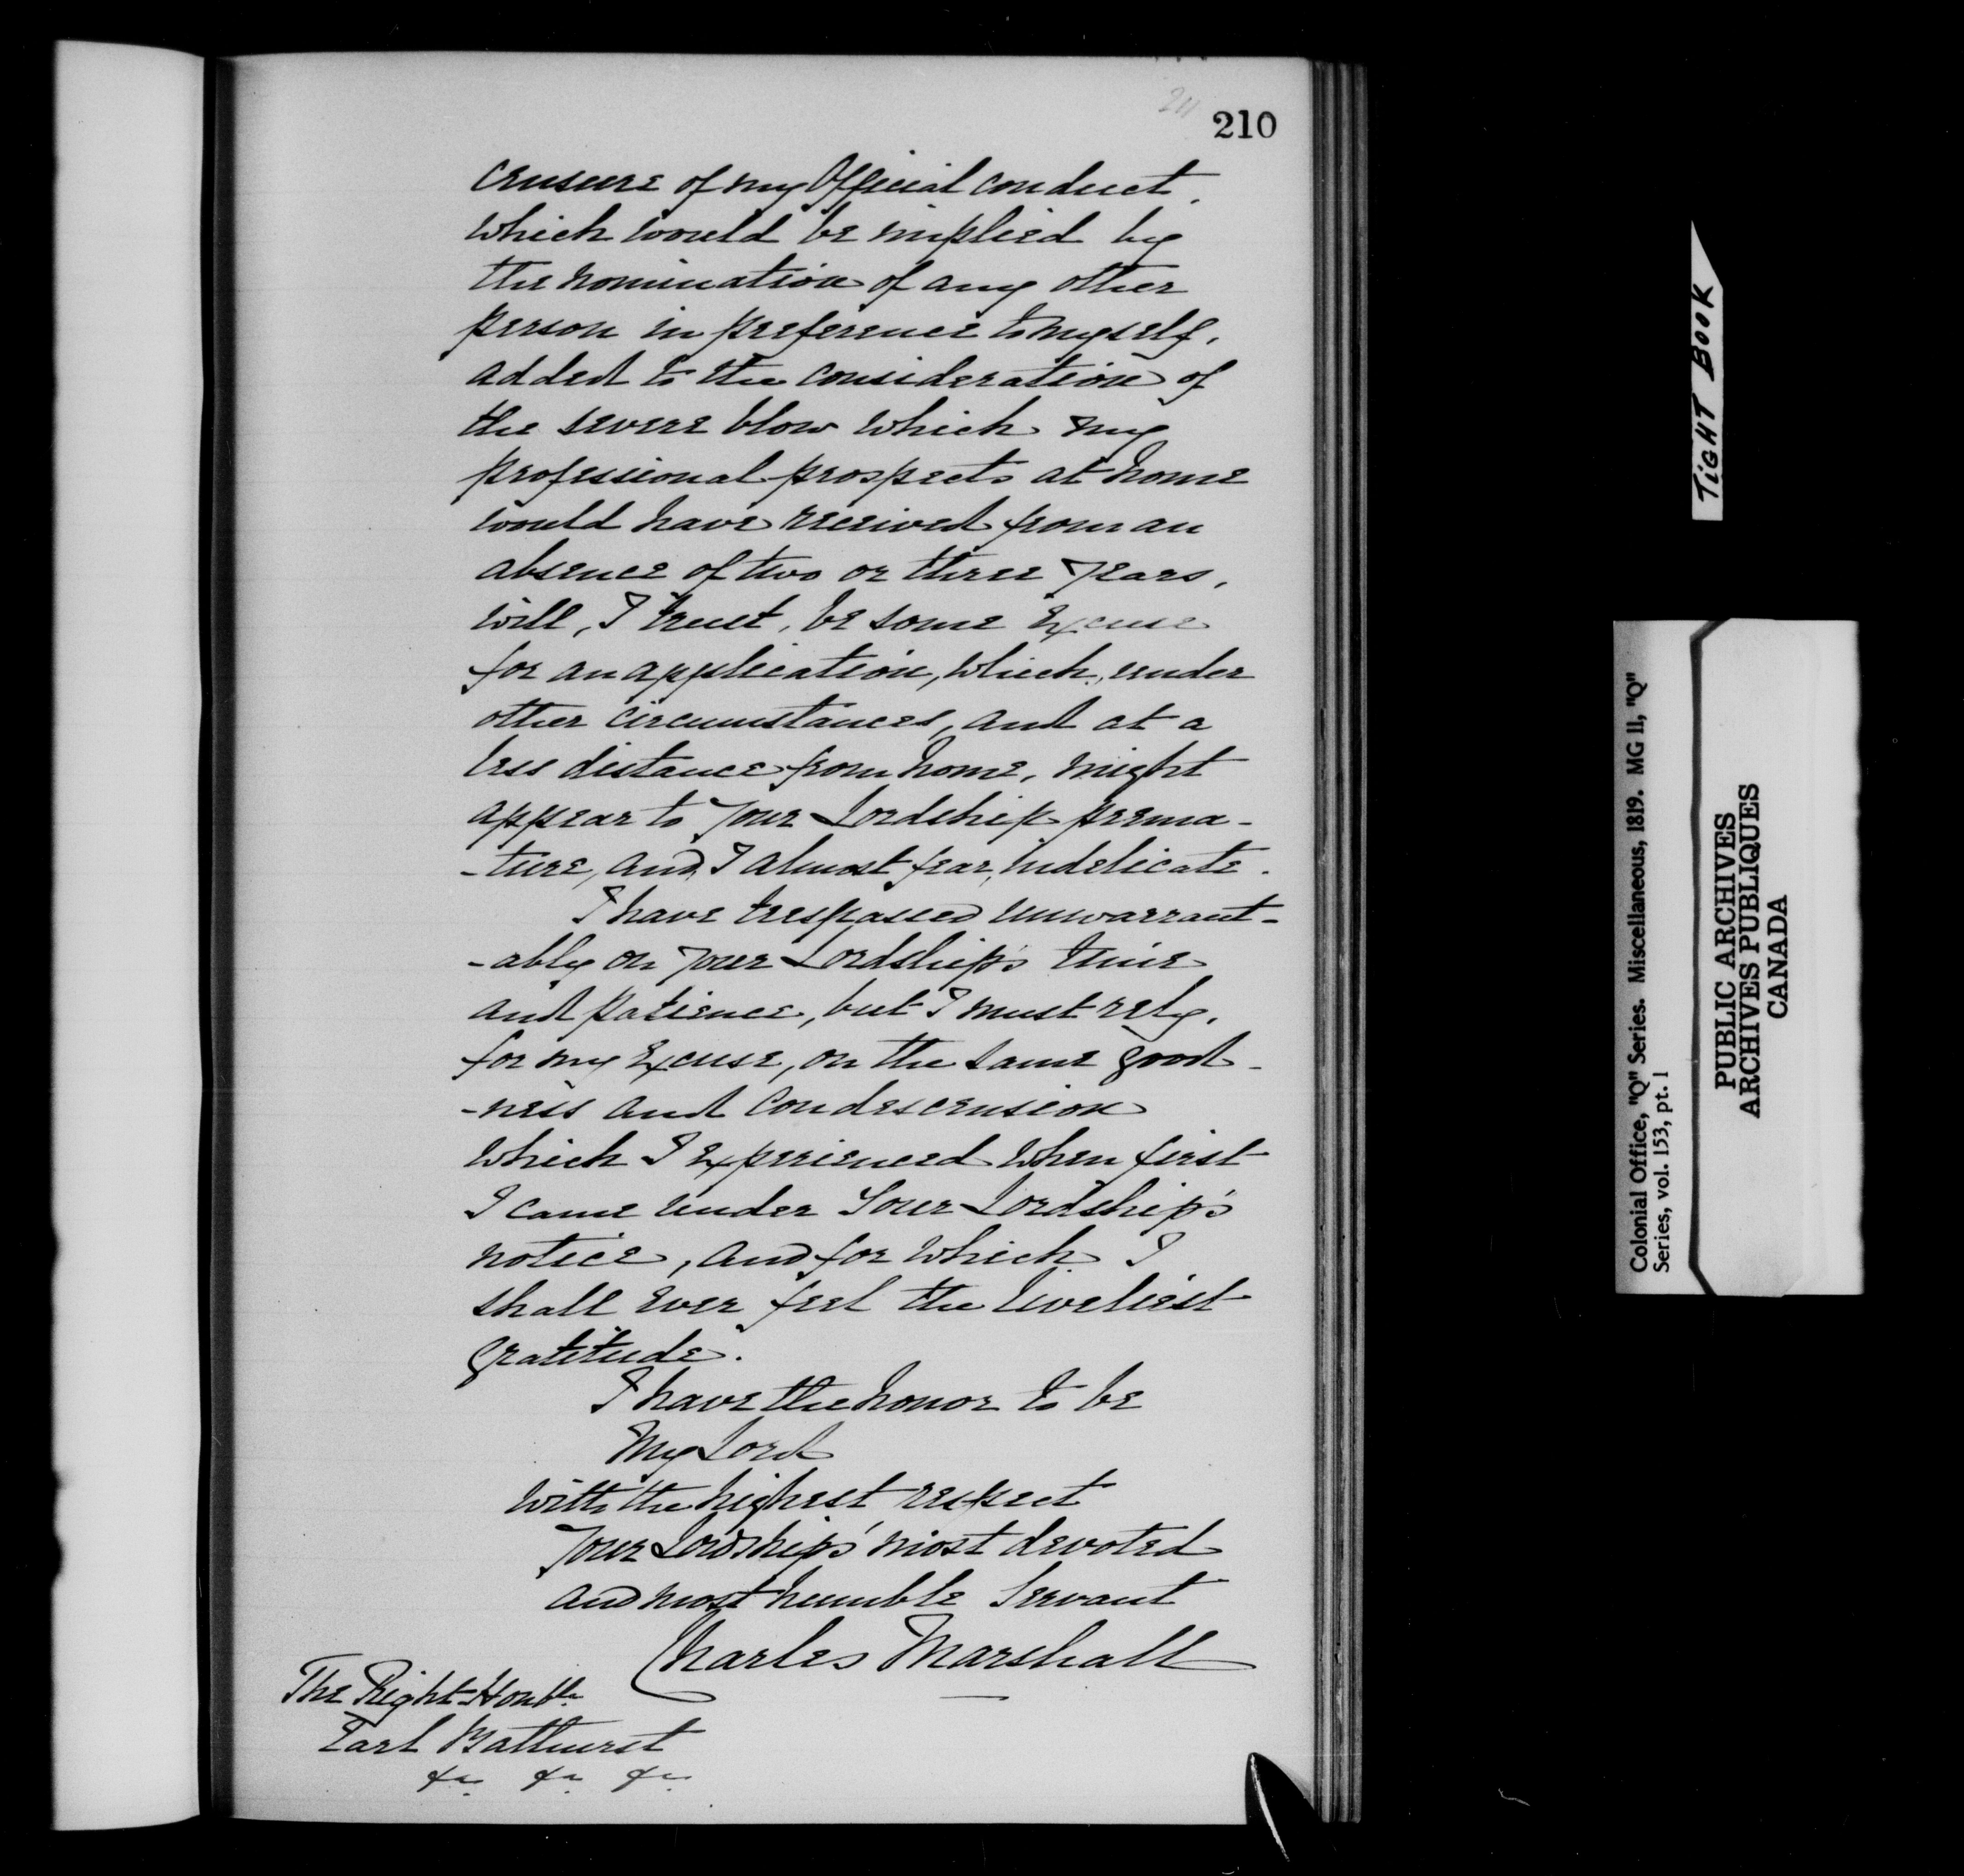 211
210
censure of my Official conduct,
which would be implied by
the nomination of any other
person in preference to myself,
added to the consideration of
the severe blow which my
professional prospects at home
would have received from an
absence of two or three years,
will, I trust, be some excuse
for an application, which, under
other circumstances, and at a
less distance from home, might
appear to your Lordship prema-
-ture, and, I almost fear, indelicate.
I have trespassed unwarrant-
-ably on your Lordship's time
and patience, but I must rely,
for my excuse, on the same good-
-ness and condescension
which I experienced when first
I came under Your Lordship's
notice, and for which I
shall ever feel the liveliest
gratitude.
I have the honor to be
My Lord
with the highest respect
your Lordship's most devoted
and most humble Servant
Charles Marshall
The Right Honble
Earl Bathurst
&c. &c. &c.
TIGHT BOOK
Colonial Office, "Q" Series. Miscellaneous, 1819. MG 11, "Q"
Series, vol. 153, pt. 1
PUBLIC ARCHIVES
ARCHIVES PUBLIQUES
CANADA